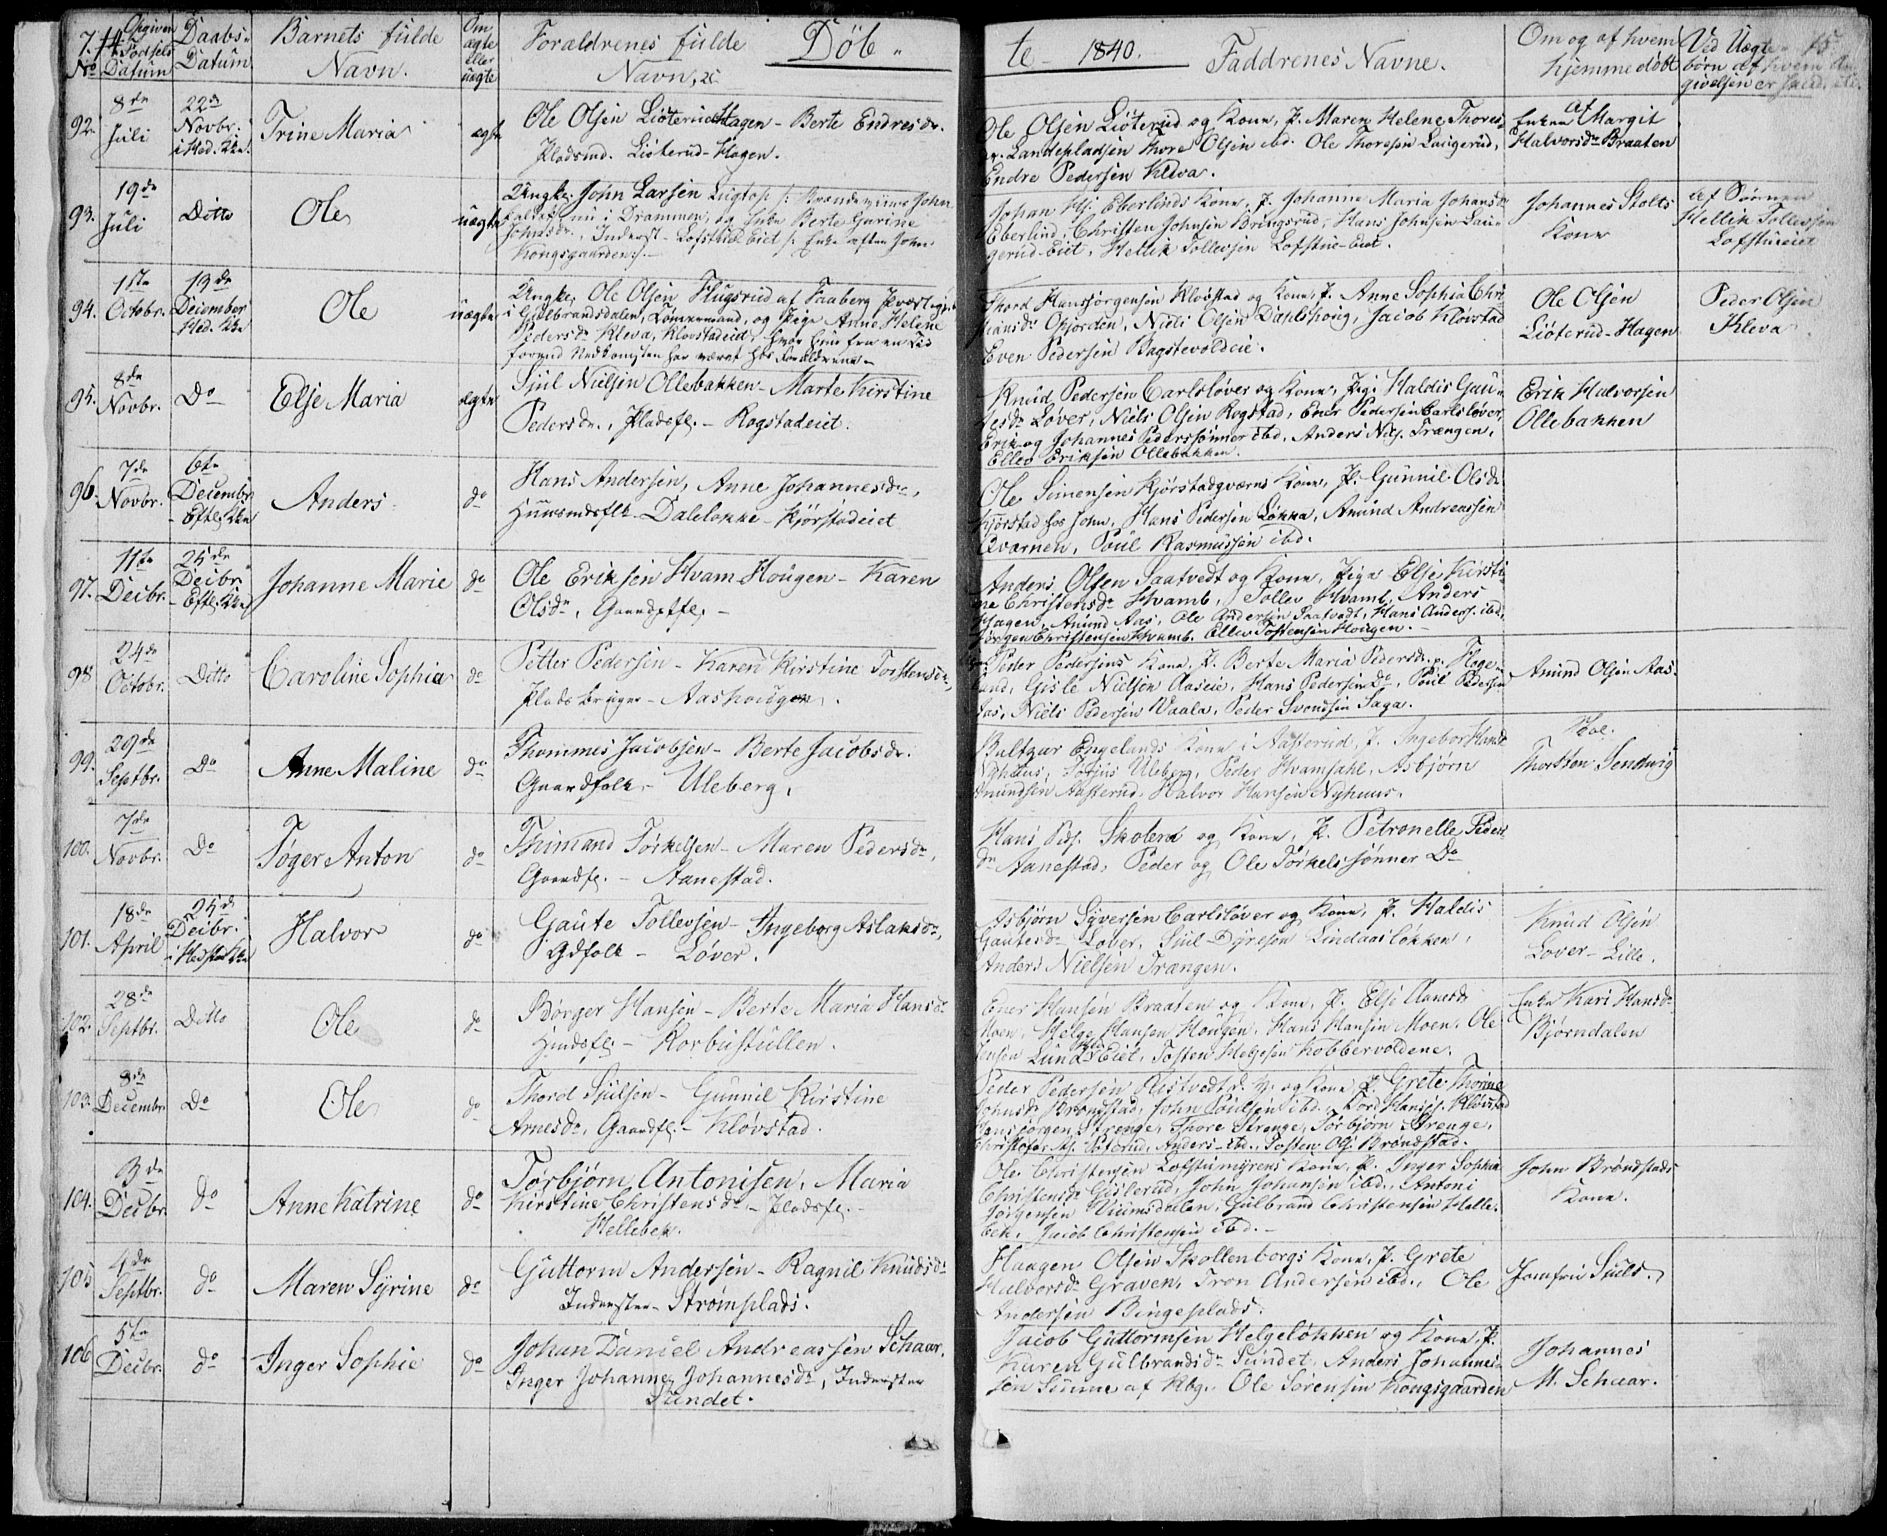 7.
No
Opgiven Fødsels Datum
Daabs-Datum
Barnets fulde Navn.
Om ægte eller uægte
Forældrenes fulde Navn,
Døb-
te - 1840.
Faddrenes Navne.
Om og af hvem hjemmedøbt
Ved Uægte børn af hvem
15
92.
8de Juli
22de Novbr. i Hed. Kke.
Trine Maria
ægte
Ole Olsen Liøterud Hagen - Berte Endresdr.
Pladsmd. Liøterud-Hagen.
Ole Olsen Liøterud og Kone, P. Maren Helene Thores-
Landepladsen Thore Olsen ibd. Ole Thoresen Laugerud,
Endre Pedersen Kleva.
Enken Margit
Halvorsdr Braaten
93.
19de Juli
Ditto
Ole
uægte
Ungk. John Larsen
nu i Drammen, og Enke Berte Gurine
Johnsdr., Inderst - Lofsthueeiet /: Enke efter John
Kongsgaarden :/.
Johan Hj. Eberlinds Kone, P. Johanne Maria Johansdr
Eberlind, Christen Johnsen Bringsrud, Hans Johnsen Lau-
gerud-Eiet, Hellik Tollevsen Lofsthu-Eiet.
Johannes Stolts
Kone
af Sønnen
Hellik Tollevsen
Lofsthueiet
94.
1ste Octobr.
13de December Hed. Kke
Ole
uægte
Ungk. Ole Olsen Flugsrud af Faaberg Præstegj.
i Gulbrandsdalen, Tømmermand, og Pige Anne Helene
Pedersdr Kleva, Klovstadeid, hvor hun fra en Tid
forud Nedkomsten har været hos Forældrene -
Thord Hansjørgensen Klovstad og Kone, P. Anne Sophia Chri-
stiansdr Ofjorden, Niels Olsen Daplehoug, Jacob Klovstad
Even Pedersen Bagstevoldeie.
Ole Olsen
Liøterud-Hagen
Peder Olsen
Kleva
95.
8de Novbr.
Do
Else Maria
ægte
Sjul Nielsen Ollebakken - Marte Kirstine
Pedersdr., Pladsfl. - Rogstadeiet.
Knud Pedersen Carlsløver og Kone, Pige Haldis Gau-
tesdr Løver, Niels Olsen Rogstad, Ener Pedersen Carlsløver,
Erik og Johannes Pederssønner ibd, Anders Nils. Trængen,
Ellev Eriksen Ollebakken.
Erik Halvorsen
Ollebakken
96.
7de Novbr.
6te Decembr. Eftl. Kke
Anders
do
Hans Andersen, Anne Johannesdr,
Huusmdsflk. Daleløkke - Kjørstadeiet
Ole Simensen Kjørstadqværns Kone, P. Gunnil Olsdr
Kjørstad hos John, Hans Pedersen Løkka, Amund Andreassen
Qværnen, Poul Rasmussen ibd.
97.
11te Decbr.
25de Decbr. Eftl. Kke
Johanne Marie
do
Ole Eriksen Hvam-Hougen - Karen
Olsdr, Gaardsfl. -
Anders Olsen Saatvedt og Kone, Pige Else Kirsti-
ne Christensdr Hvamb, Tollev Hvamb, Anders
Hagen, Amund Aas, Ole Andersen Saatvedt, Hans Anders. ibd.
Jørgen Christensen Hvamb, Ellev Tostensen Hougen.
98
24de Octobr.
Ditto
Caroline Sophia
do
Petter Pedersen - Karen Kirstine Torstensdr,
Pladsbruger - Aashougen.
Peder Pedersens Kone, P. Berte Maria Pedersdr. Floge-
lund, Gisle Nielsen Aaseie, Hans Pedersen Do, Poul Pedersen
Aas, Niels Pedersen Vaala, Peder Svendsen Saga.
Amund Olsen Aas.
99.
29de Septbr.
Do
Anne Maline
do
Thommes Jacobsen - Berte Jacobsdr.
Gaardfolk - Uleberg,
Baltzar Engelands Kone i Aasterud, P. Ingebor Hansd.
Nyhuus, Torjus Uleberg, Peder Hvamsahl, Asbjørn
Amundsen Aasterud, Halvor Hansen Nyhuus.
Thorsten Sendwig
100.
7de Novbr.
Do
Tøger Anton
do
Thimand Torkelsen - Maren Pedersdr,
Gaardfl. - Aanestad.
Hans Pdr. Skolerud og Kone, P. Petronelle Peders-
dr Aanestad, Peder og Ole Torkelssønner Do
101.
18de April
25de Decbr. i Hedsta Kke
Halvor
do
Gaute Tollevsen - Ingeborg Aslaksdr,
Gdfolk - Løver.
Asbjørn Syversen Carlsløver og Kone, P. Haldis
Gautesdr Løver, Sjul Dyresen Lindaasløkken,
Anders Nielsen Trængen.
Knud Olsen
Løver - Lille.
102.
28de Septbr.
Ditto
Ole
do
Børger Hansen - Berte Maria Hansdr
Huusfl. - Korbustullen.
Ener Hansen Braaten og Kone, P. Else Hansdr
Moen, Helge Hansen Hougen, Hans Hansen Moen, Ole
Jensen Lunds Eiet, Tosten Helgesen Kobbervoldene.
Enke Kari Hansdr
Bjørndalen
103.
8de Decembr.
Do
Ole
do
Thord Sjulsen - Gunnil Kirstine
Arnesdr, Gaardfl. - Kløvstad.
Peder Pedersen Ristvedt og Kone, P. Grete Thorine
Johnsdr Brøndstad, John Poulsen ibd., Tord Hansj. Kløvstad
Hansjørgen Strenge, Thore Strenge, Torbjørn Strenge,
Anders ibd., Tosten Ols. Brøndstad.
104.
3de Decbr.
do
Anne Katrine
do
Torbjørn Antonisen, Maria
Kirstine Christensdr - Pladsfl. -
Hellebek.
Ole Christensen Lofstumyrens Kone, P. Inger Sophia
Christensdr Gislerud, John Johansen ibd., Antoni
Jørgensen Huumsdalen, Gulbrand Christensen Helle-
bek, Jacob Christensen ibd. -
John Brøndstads
Kone.
105
4de Septbr.
do
Maren Syrine
do
Guttorm Andersen - Ragnil Knudsdr
Inderster - Strømsplads.
Haagen Olsen Skollenborgs Kone, P. Grete
Halvorsdr Graven, Tron Andersen ibd., Ole
Andersen Bingeplads.
Jomfru Sjuls.
106
5te Decbr.
do
Inger Sophie
do
Johan Daniel Andreassen Schaar,
Inger Johanne Johannesdr, Inderster
Sundet.
Jacob Guttormsen Helgeløkken og Kone, P.
Karen Gulbrandsdr Sundet, Anders Johannes-
sen Sunne af Kbg., Ole Sørensen Kongsgaarden
Johannes
M. Schaar.